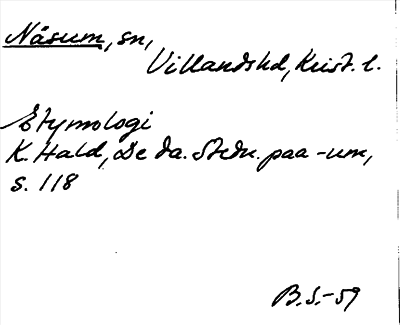 Näsum, sn,
Villandshd, Krist. l.
Etymologi
K. Hald, De da. Stedn. paa -um,
s. 118
B.S.-59